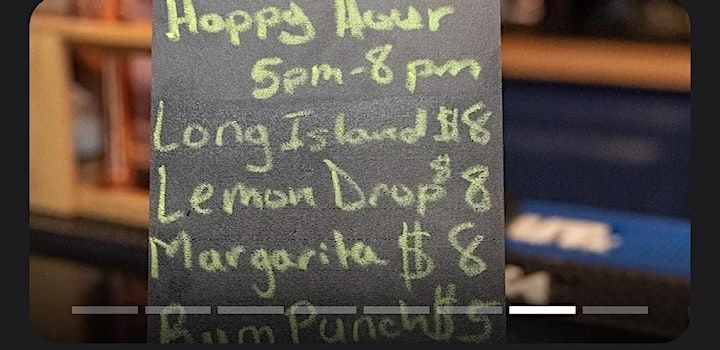 Happy Hour
5pm-8pm
Long Island $8
Lemon Drop $8
Margarita $8
Rum Punch $5